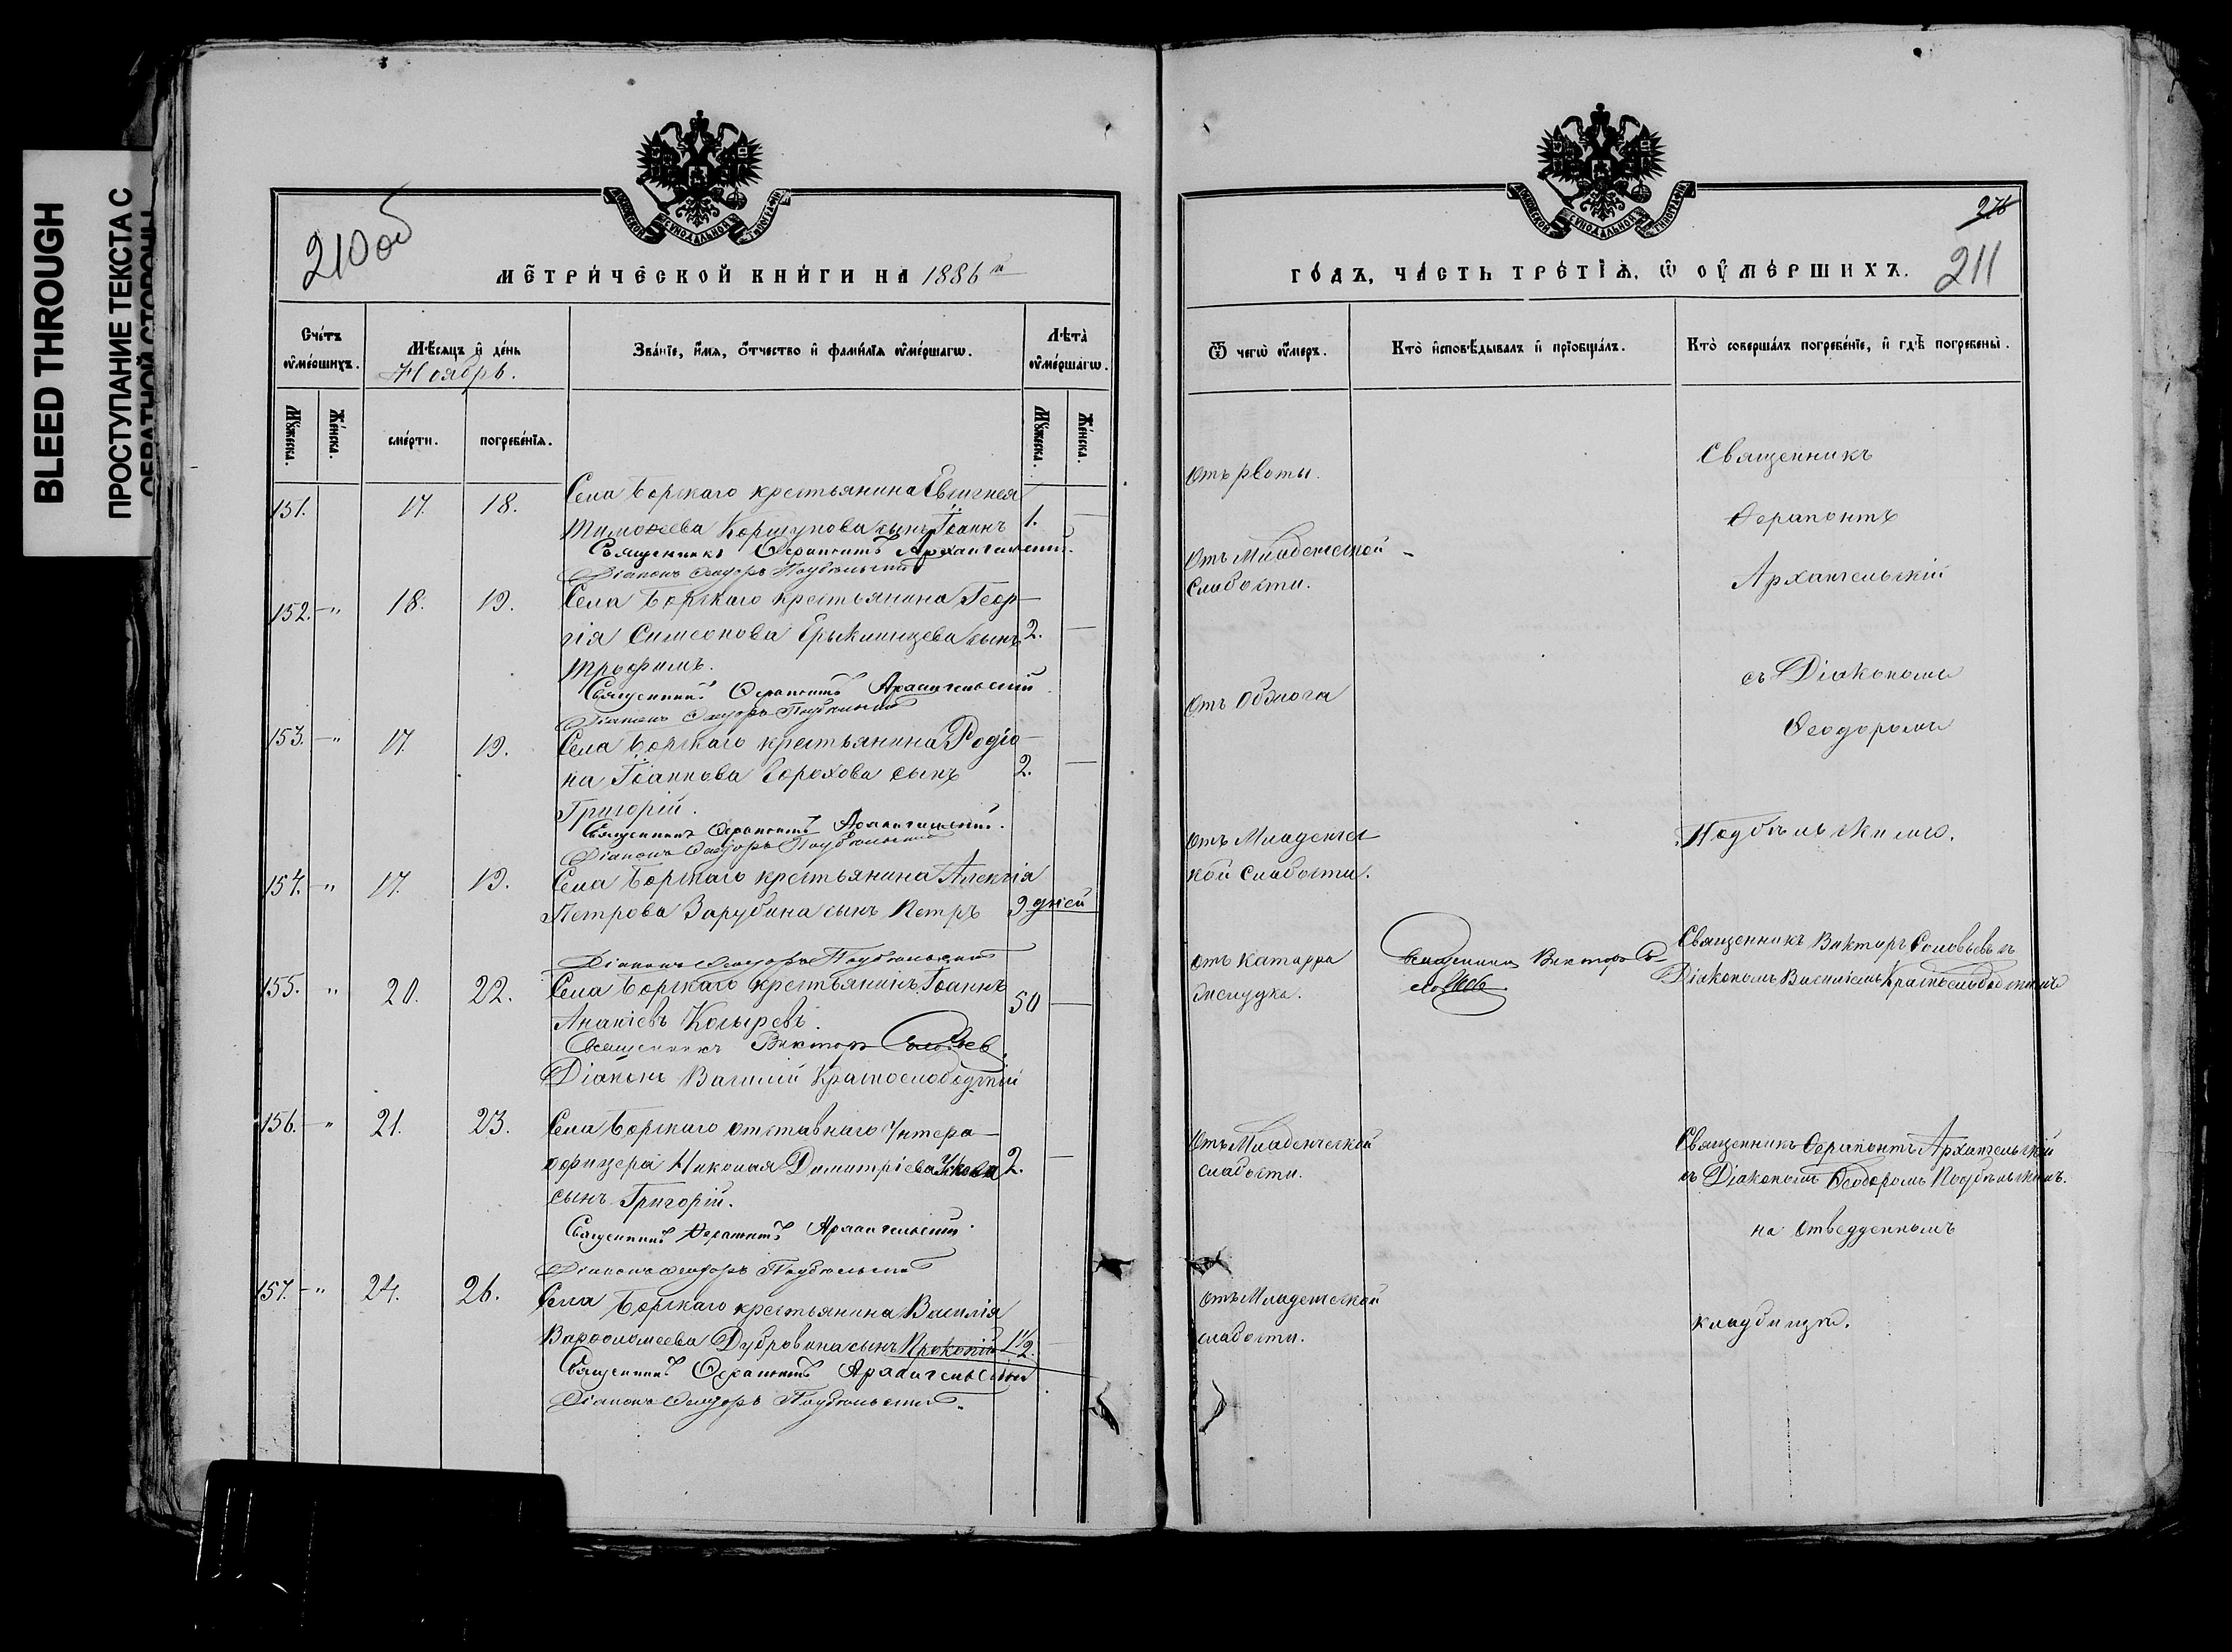 BLEED THROUGH
ПРОСТУПАНИЕ ТЕКСТА С
ОБРАТНОЙ СТОРОНЫ
210 об
МЕТРИЧЕСКОЙ КНИГИ НА 1886 й
Счетъ умершихъ.
Мѣсяцъ и день
Ноябрь.
Званіе, имя, отчество и фамилія умершагѡ.
Лѣта умершагѡ.
Мужеска.
Женска.
смерти.
погребенія.
Мужеска.
Женска.
151. 17. 18. Села Борскаго крестьянина Евсигнея
Тимоѳеева Коршунова сынъ Іоаннъ 1. —
Священникъ Ѳерапонтъ Архангельскій.
Діаконъ Ѳеодоръ Подбѣльскій
152. — " 18. 19. Села Борскаго крестьянина Геор-
гія Симеонова Ерыклинцева сынъ 2. —
Трофимъ.
Священникъ Ѳерапонтъ Архангельскій
Діаконъ Ѳеодоръ Подбѣльскій
153. — " 17. 19. Села Борскаго крестьянина Родіо-
на Іоаннова Горохова сынъ 2. —
Григорій.
Священникъ Ѳерапонтъ Архангельскій.
Діаконъ Ѳеодоръ Подбѣльскій
154. — " 17. 19. Села Борскаго крестьянина Алексія
Петрова Зарубина сынъ Петръ 9 дней
Діаконъ Ѳеодоръ Подбѣльскій
155. " 20. 22. Села Борскаго крестьянинъ Іоаннъ 50 —
Ананіевъ Косыревъ.
Священникъ Викторъ Соловьев
Діаконъ Василій Краснослободскій
156. — " 21. 23. Села Борскаго отставнаго Унтера-
офицера Николая Димитріева 2. —
сынъ Григорій.
Священникъ Ѳерапонтъ Архангельскій.
Діаконъ Ѳеодоръ Подбѣльскій
157. — " 24. 26. Села Борскаго крестьянина Василія
Варѳоломеева Дубровина сынъ Прокопій 1 1/2.
Священникъ Ѳерапонтъ Архангельскій
Діаконъ Ѳеодоръ Подбѣльскій.
276
211
ГОДЪ, ЧАСТЬ ТРЕТІЯ, Ѡ УМЕРШИХЪ.
Ѿ чегѡ умеръ.
Кто исповѣдывалъ и пріобщалъ.
Кто совершалъ погребеніе, и гдѣ погребены.
Отъ рвоты.
Священникъ
Ѳерапонтъ
Отъ Младенческой
слабости.
Архангельскій
Отъ
съ Діакономъ
Ѳеодоромъ
Отъ Младенчес
кой слабости.
Подбѣльскимъ.
Отъ катарра
желудка.
Священникъ Викторъ Со-
ловьев
Священникъ Викторъ Соловьевъ съ
Діакономъ Василіемъ Краснослободскимъ
Отъ Младенческой
слабости.
Священникъ Ѳерапонтъ Архангельскій
съ Діакономъ Ѳеодоромъ Подбѣльскимъ.
на отведденномъ
Отъ Младенческой
слабости.
кладбищѣ.